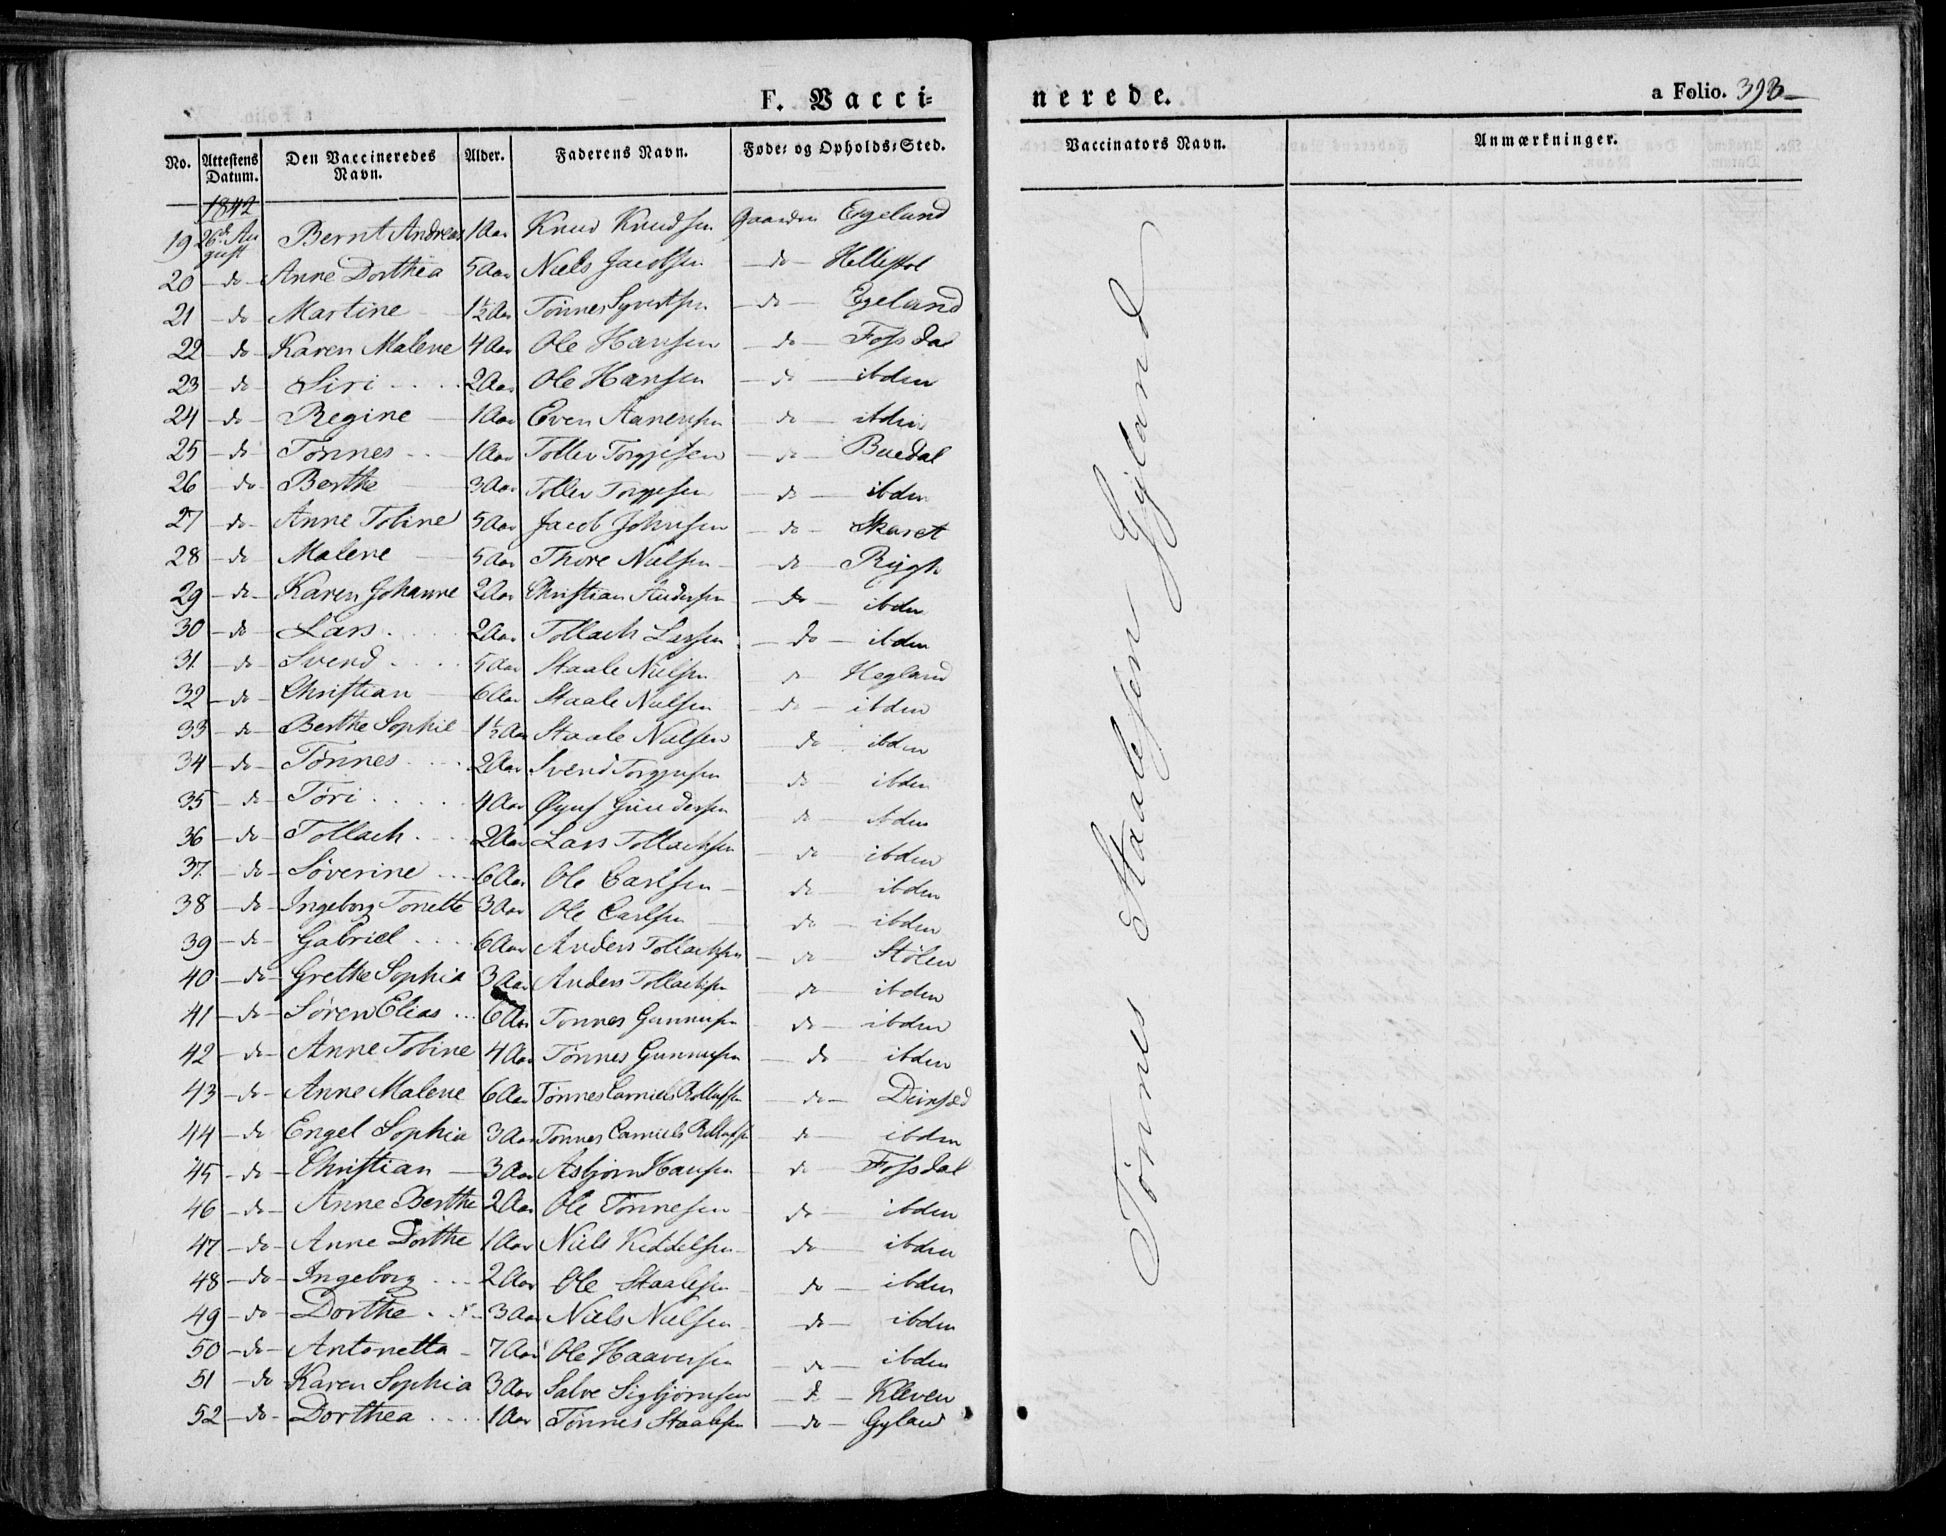 F. Vacci=
nerede.
a Folio. 393
No. Attestens Datum. Den Vaccineredes Navn. Alder. Faderens Navn. Føde= og Opholds=Sted. Vaccinators Navn. Anmærkninger.
1842
19 26de August Bernt Andreas 1 Aar Knud Knudsen Gaarden Egeland
20 - do - Anne Dorthea 5 Aar Niels Jacobsen - do - Hellestøl
21 - do - Martine 1½ Aar Tønnes Syvertsen - do - Egeland
22 - do - Karen Malene 4 Aar Ole Hansen - do - Fossdal
23 - do - Siri 2 Aar Ole Hansen - do - ibden
24 - do - Regine 1 Aar Even Aanensen - do - ibden
25 - do - Tønnes 1 Aar Tollev Torgjesen - do - Buedal
26 - do - Berthe 3 Aar Tollev Torgjesen - do - ibden
27 - do - Anne Tobine 5 Aar Jacob Johnsen - do - Skaret
28 - do - Malene 5 Aar Thore Nielsen - do - Rügh
29 - do - Karen Johanne 2 Aar Christian Andersen - do - ibden
30 - do - Lars 2 Aar Tollach Larsen - do - ibden
31 - do - Svend 5 Aar Staale Nielsen - do Hegland
32 - do - Christian 6 Aar Staale Nielsen - do - ibden
33 - do - Berthe Sophie 1½ Aar Staale Nielsen do ibden
34 - do - Tønnes 2 Aar Svend Torgjusen do ibden
35 - do - Tøri 4 Aar Øyuf Gundersen do ibden
36 - do - Tollach 2 Aar Lars Tollachsen - do ibden
37. - do - Søverine 6 Aar Ole Carlsen - do ibden
38 - do - Ingeborg Tonette 3 Aar Ole Carlsen - do - ibden
39 - do - Gabriel 6 Aar Anders Tollachsen - do - Stølen
40 - do - Grethe Sophia 3 Aar Anders Tollachsen - do - ibden
41 - do - Søren Elias 6 Aar Tønnes Gunnusen - do - ibden
42 - do - Anne Tobine 4 Aar Tønnes Gunnusen - do ibden
43 - do - Anne Malene 6 Aar Tønnes Corniels Rollufsen - do -
44 - do Engel Sophia 3 Aar Tønnes Corniels Rollufsen - do - ibden
45 - do - Christian 3 Aar Asbjørn Hansen - do - Fossdal
46 - do - Anne Berthe 2 Aar Ole Tønnesen - do - ibden
47 - do - Anne Dorthe 1 Aar Niels Keddelsen - do - ibden
48 - do - Ingeborg 2 Aar Ole Staalesen - do - ibden
49 - do - Dorthe 3 Aar Niels Nielsen - do - ibden
50 - do - Antonetta 7 Aar Ole Haaversen - do - ibden
51 - do Karen Sophia 3 Aar Salve Sigbjørnsen - do - Kleven
52 - do - Dorthea 1 Aar Tønnes Staalesen - do - Gyland
Tønnes Staalesen Gyland